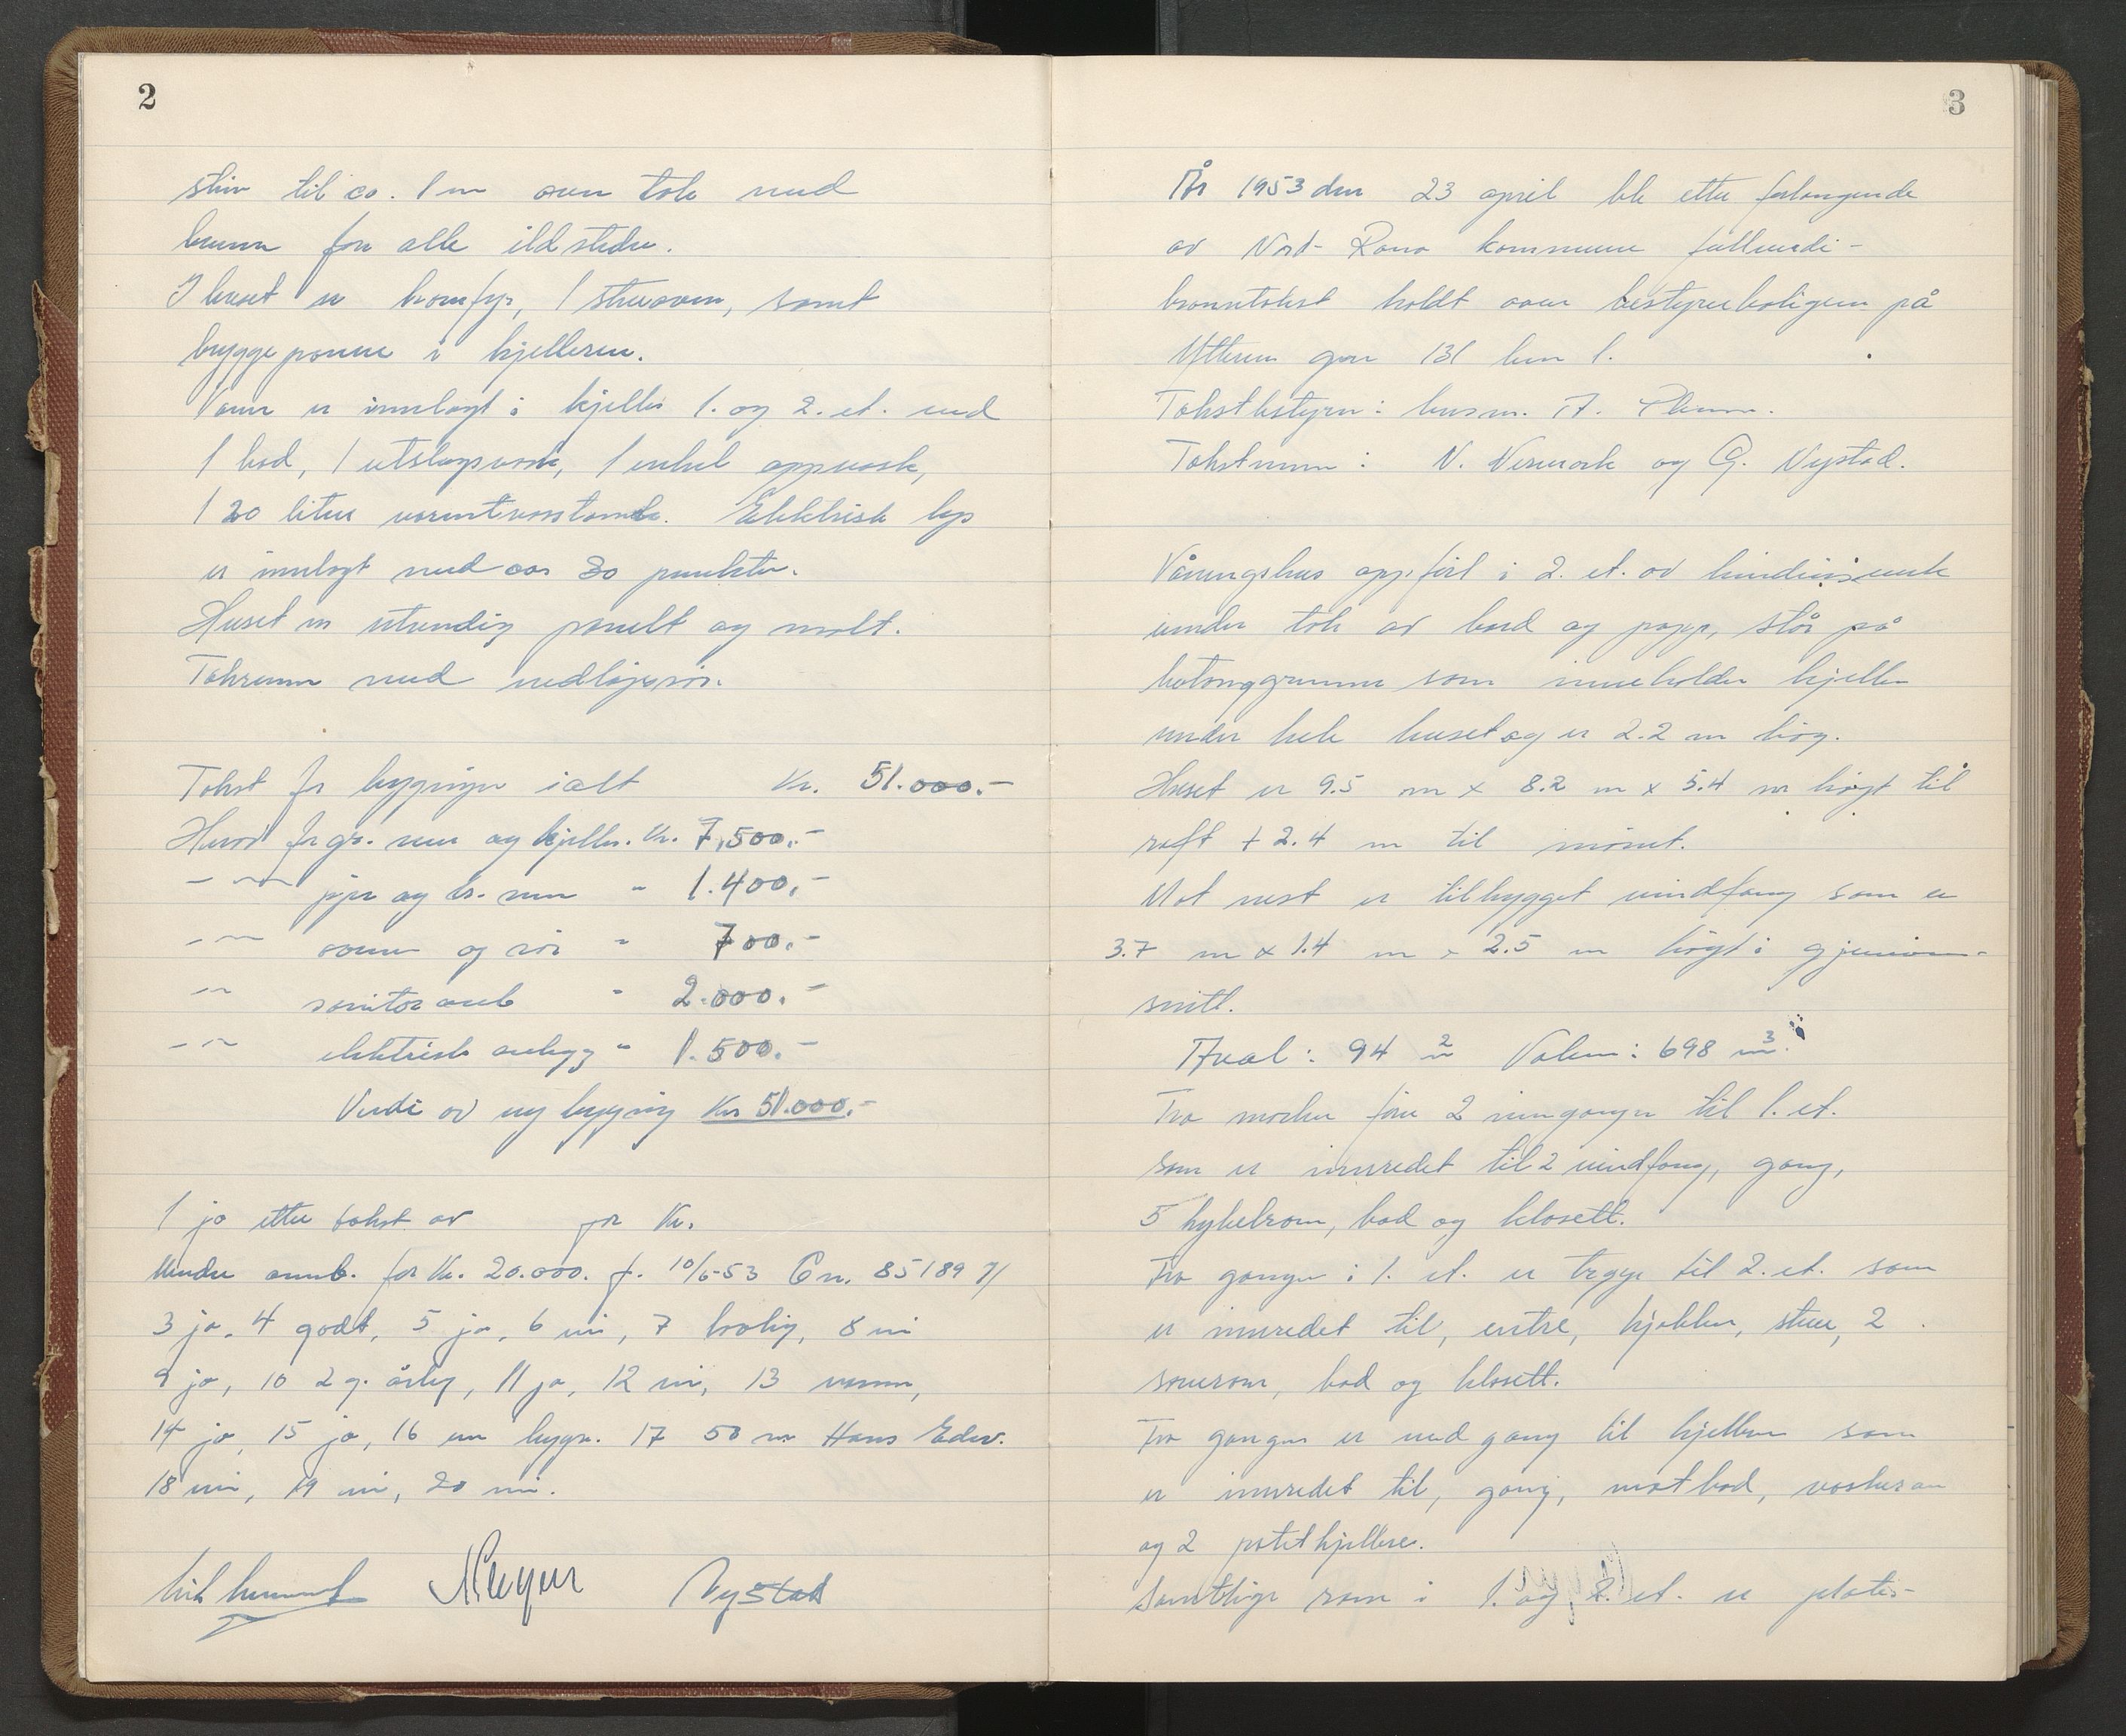 2
skiv til ca. 1 m over tak med
brann for alle ildsteder.
I huset er komfyr, 1 stueovn, samt
bryggepanne i kjelleren.
Vann er innlagt i kjeller 1. og 2. et. med
1 bad, 1 utslagsvask, 1 enkel oppvask,
120 liter varmtvasstank. Elektrisk lys
er innlagt med ca. 30 punkter.
Huset er utvendig panelt og malt.
Takrenner med nedløpsrør.
Takst for bygningen ialt Kr. 51.000.-
Herav for gr. mur og kjeller. Kr. 7.500.-
-"- piper og br. mur " 1.400.-
-"- ovner og rør " 700.-
-"- sanitæranl " 2.000.-
-"- elektrisk anlegg " 1.500.-
Verdi av ny bygning Kr 51.000.-
1 ja etter takst av for Kr.
for Kr. 20.000. f. 10/6-53 85189
3 ja, 4 godt, 5 ja, 6 nei, 7 bolig, 8 nei
9 ja, 10 2 g. årlig, 11 ja, 12 nei, 13
14 ja, 15 ja, 16 en bygn. 17 50 m Hans Edv.
18 nei, 19 nei, 20 nei.
Nystad
3
År 1953 den 23 april ble etter forlangende
av Nord-Rana kommune fullverdi-
branntakst holdt over bestyrerboligen på
Ytteren gnr 131 bnr 1.
Takstbestyrer: lensm. A.
Takstmenn: N. Nermark og G. Nystad.
Våningshus oppført i 2. et. av bindingsverk
under tak av bord og papp, står på
betonggrunnmur som inneholder kjeller
under hele huset og er 2.2 m høg.
Huset er 9.5 m x 8.2 m x 5.4 m høgt til
raft + 2.4 m til mønet.
Mot vest er tilbygget vindfang som er
3.7 m x 1.4 m x 2.5 m høgt i gjennom-
snitt.
Areal: 94 m2 Volum: 698 m3.
Fra marken fører 2 innganger til 1. et.
som er innredet til 2 vindfang, gang,
5 hybelrom, bad og klosett.
Fra gangen i 1. et. er trapp til 2. et. som
er innredet til, entre, kjøkken, stue, 2
soverom, bad og klosett.
Fra gangen er nedgang til kjelleren som
er innredet til, gang, matbod, vaskerom
og 2 potetkjellere.
Samtlige rom i 1. og 2. et. er plate-